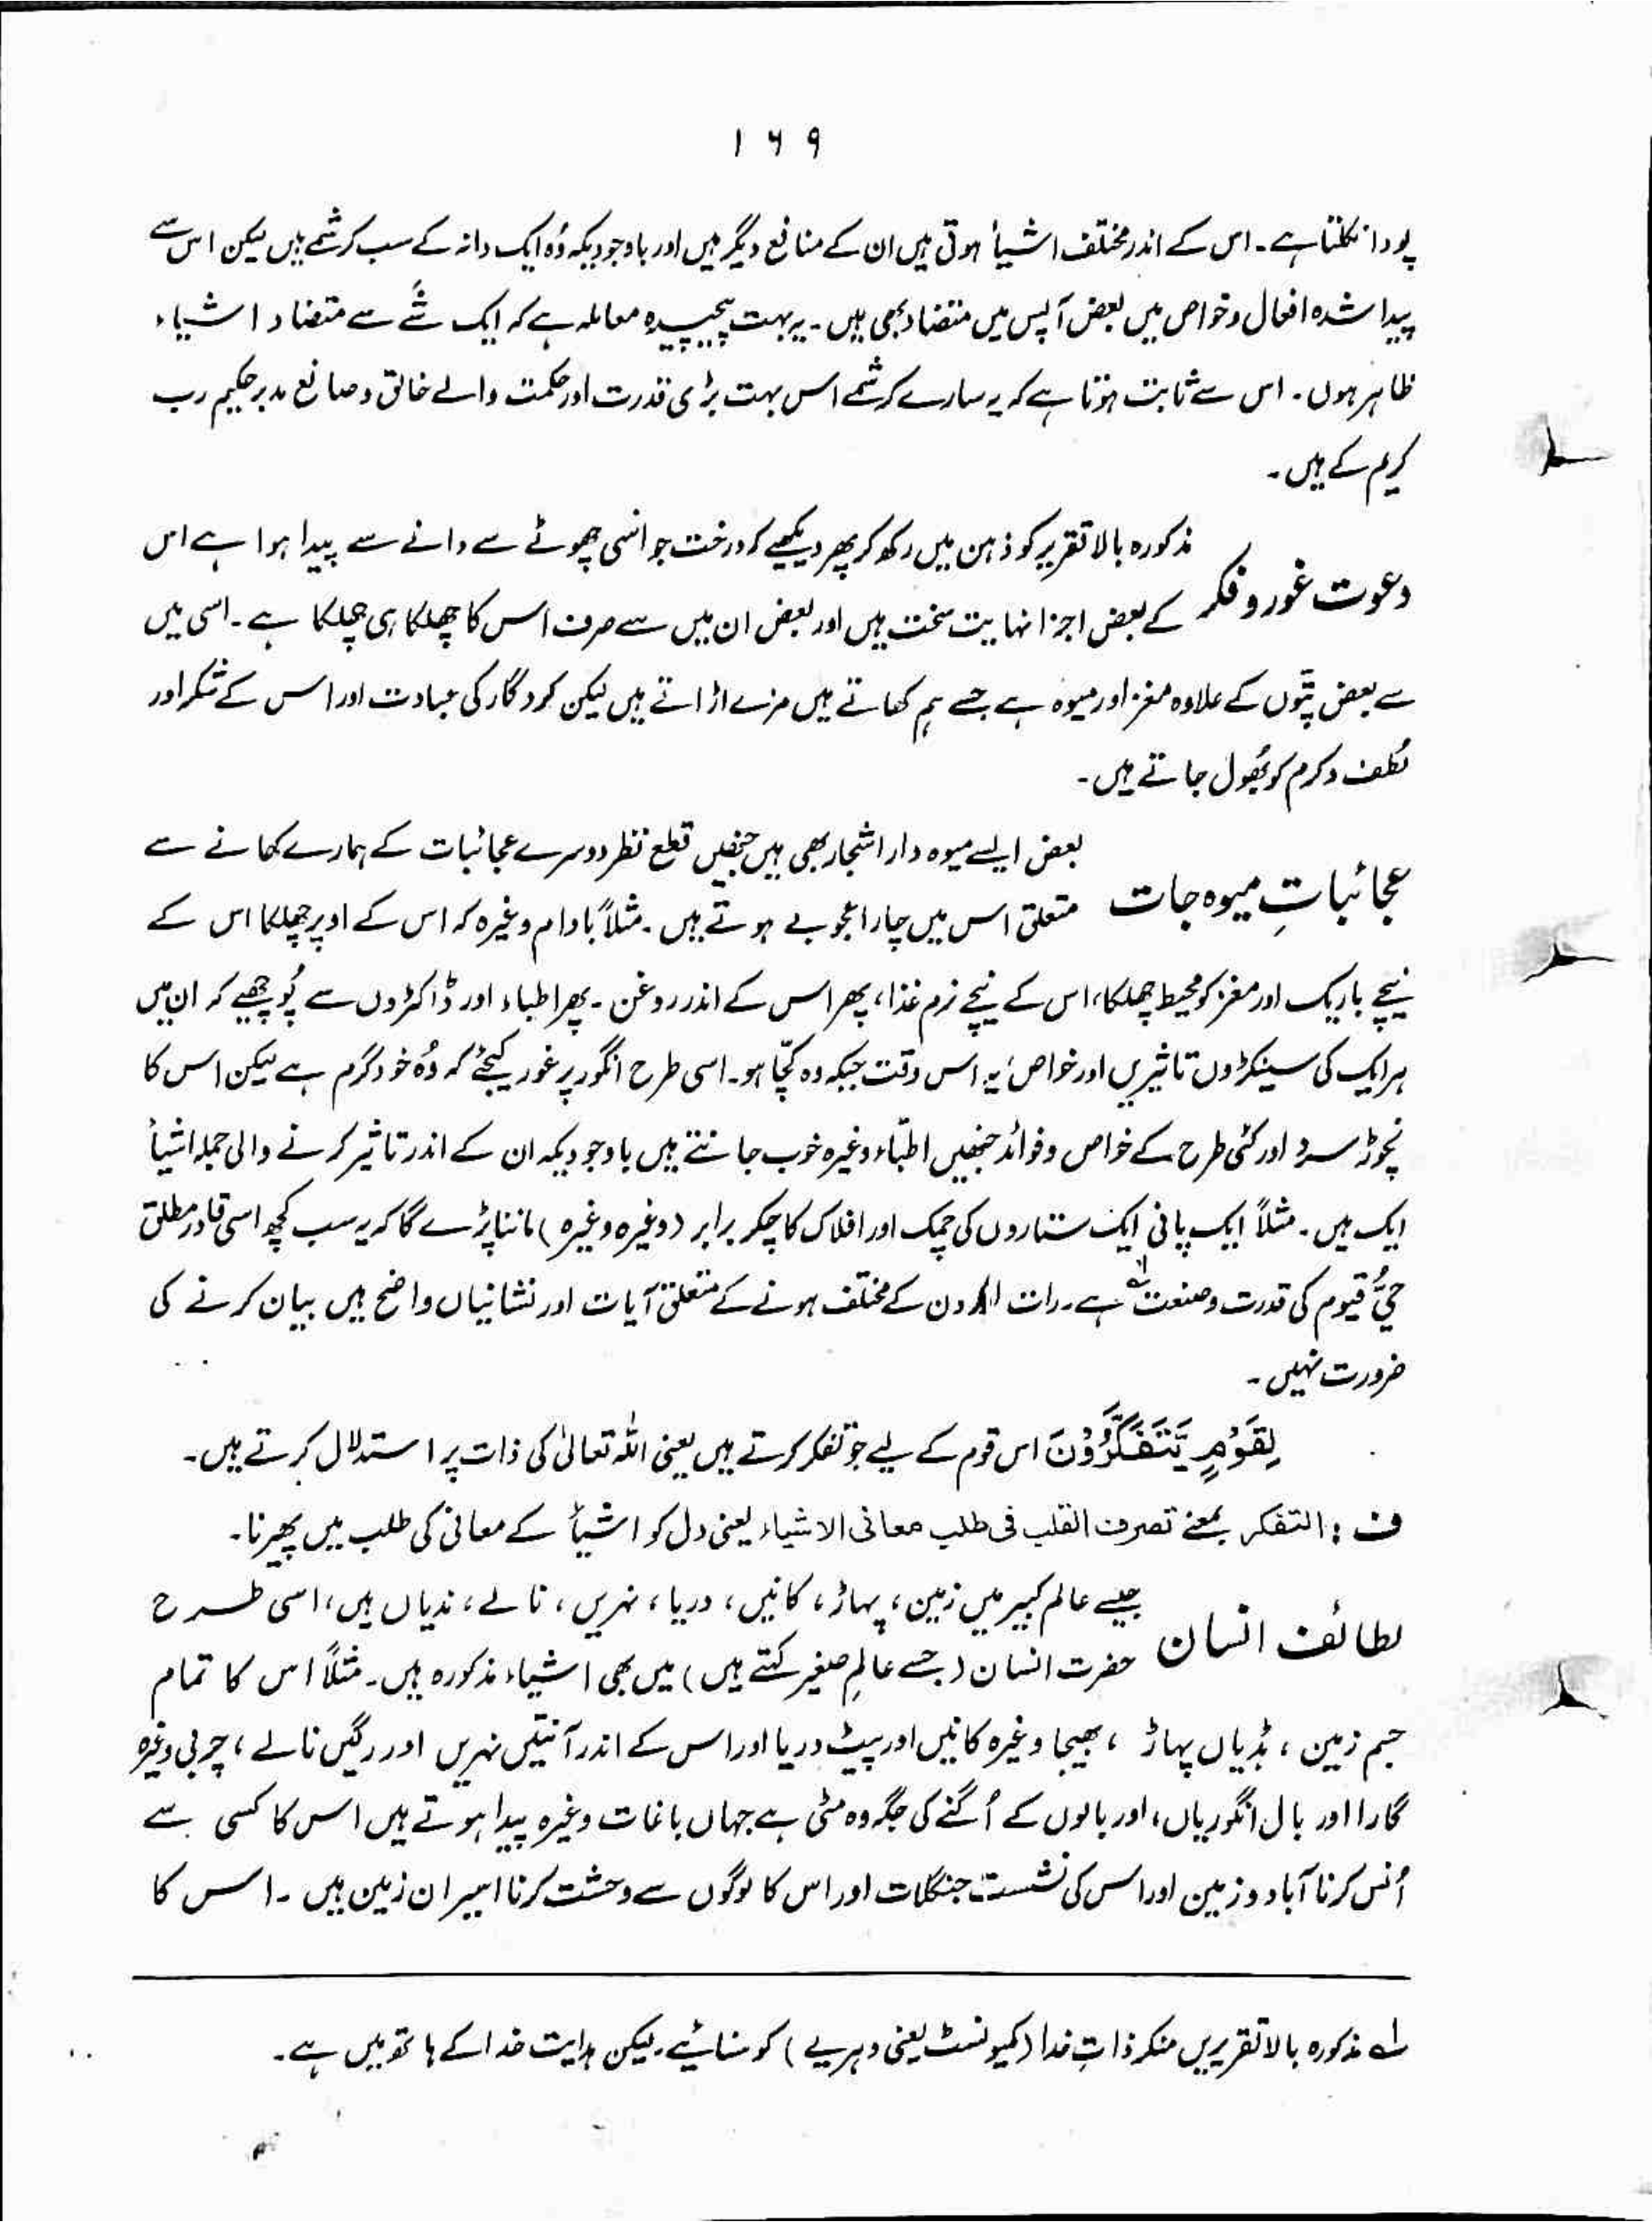 ۱۶۹
پودا نکلتا ہے۔ اس کے اندر مختلف اشیأ ہوتی ہیں ان کے منافع دیگر ہیں اور باوجودیکہ وُہ ایک دانہ کے سب کرشمے ہیں لیکن اس سے
پیدا شدہ افعال وخواص میں بعض آپس میں متضاد بھی ہیں۔ یہ بہت پیچیدہ معاملہ ہے کہ ایک شَے سے متضاد اشیاء
ظاہر ہوں۔ اس سے ثابت ہوتا ہے کہ یہ سارے کرشمے اس بہت بڑی قدرت اور حکمت والے خالق وصانع مدبر حکیم رب
کریم کے ہیں۔
دعوت غور و فکر مذکورہ بالا تقریر کو ذہن میں رکھ کر پھر دیکھیے کہ درخت جو اسی چھوٹے سے دانے سے پیدا ہوا ہے اس
کے بعض اجزا نہایت سخت ہیں اور بعض ان میں سے صرف اس کا چھلکا ہی چھلکا ہے۔ اسی میں
سے بعض پتّوں کے علاوہ مغز اور میوہ ہے جسے ہم کھاتے ہیں مزے اڑاتے ہیں لیکن کردگار کی عبادت اور اس کے شکر اور
لُطف وکرم کو بھُول جاتے ہیں۔
عجائباتِ میوہ جات بعض ایسے میوہ دار اشجار بھی ہیں جنھیں قطع نظر دوسرے عجائبات کے ہمارے کھانے سے
متعلق اس میں چار اعجوبے ہوتے ہیں۔ مثلاً بادام وغیرہ کہ اس کے اوپر چھلکا اس کے
نیچے باریک اور مغز کو محیط چھلکا، اس کے نیچے نرم غذا، پھر اس کے اندر روغن۔ پھر اطباء اور ڈاکٹروں سے پُوچھیے کہ ان میں
ہر ایک کی سینکڑوں تاثیریں اور خواص، یہ اس وقت جبکہ وہ کچّا ہو۔ اسی طرح انگور پر غور کیجئے کہ وُہ خود گرم ہے لیکن اس کا
نچوڑ سرد اور کئی طرح کے خواص وفوائد جنھیں اطبّاء وغیرہ خوب جانتے ہیں باوجودیکہ ان کے اندر تاثیر کرنے والی جملہ اشیأ
ایک ہیں۔ مثلاً ایک پانی ایک ستاروں کی چمک اور افلاک کا چکر برابر (وغیرہ وغیرہ) ماننا پڑے گا کہ یہ سب کچھ اسی قادر مطلق
حیُّ قیوم کی قدرت وصنعت لہ ہے۔ رات اور دن کے مختلف ہونے کے متعلق آیات اور نشانیاں واضح ہیں بیان کرنے کی
ضرورت نہیں۔
لِقَوْمٍ یَّتَفَکَّرُوْنَ اس قوم کے لیے جو تفکر کرتے ہیں یعنی اللہ تعالیٰ کی ذات پر استدلال کرتے ہیں۔
ف : التفکر بمعنے تصرف القلب فی طلب معانی الاشیاء یعنی دل کو اشیأ کے معانی کی طلب میں پھیرنا۔
لطائف انسان جیسے عالم کبیر میں زمین، پہاڑ، کانیں، دریا، نہریں، نالے، ندیاں ہیں، اسی طرح
حضرت انسان (جسے عالمِ صغیر کہتے ہیں) میں بھی اشیاء مذکورہ ہیں۔ مثلاً اس کا تمام
جسم زمین، ہڈیاں پہاڑ، بھیجا وغیرہ کانیں اور پیٹ دریا اور اس کے اندر آنتیں نہریں اور رگیں نالے، چربی وغیرہ
گارا اور بال انگوریاں، اور بالوں کے اُگنے کی جگہ وہ مٹی ہے جہاں باغات وغیرہ پیدا ہوتے ہیں اس کا کسی سے
اُنس کرنا آباد و زمین اور اس کی نشست جنگلات اور اس کا لوگوں سے وحشت کرنا اسیران زمین ہیں۔ اس کا
لہ مذکورہ بالا تقریریں منکر ذاتِ خدا (کمیونسٹ یعنی دہریے) کو سنائیے۔ لیکن ہدایت خدا کے ہاتھ میں ہے۔